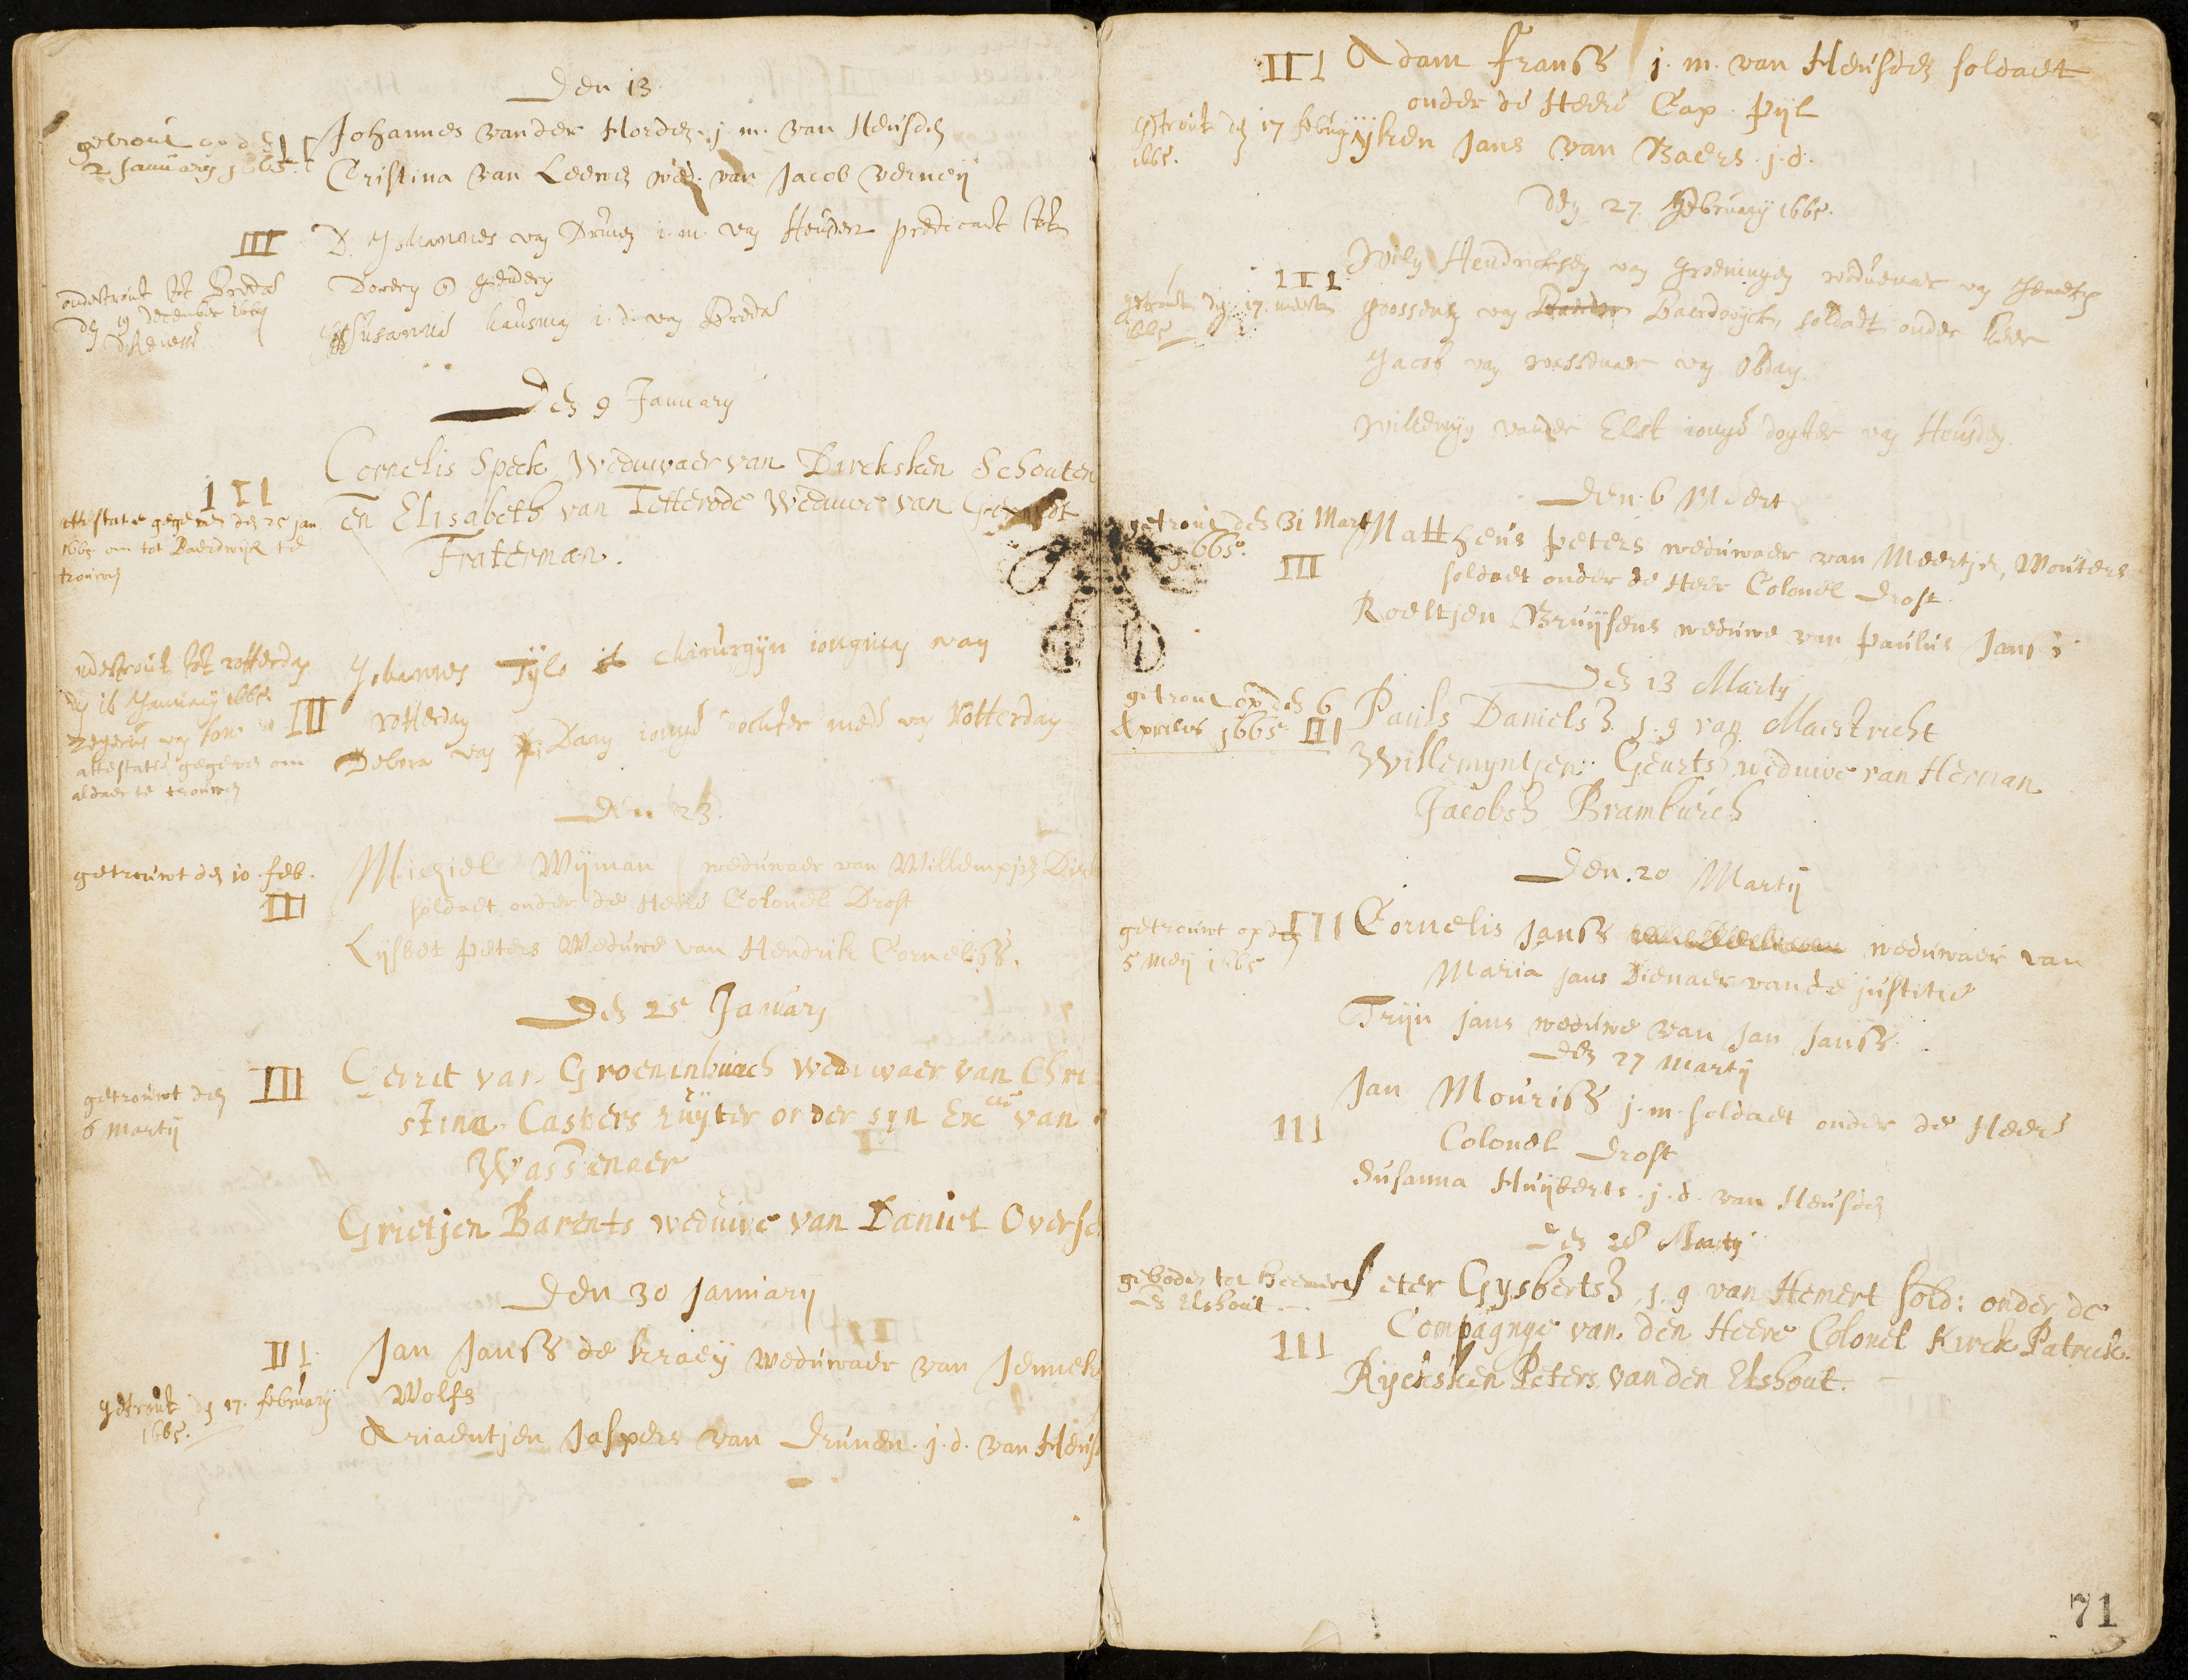 Den 13.
getrout op den
2 January 1665.
III
Johannes vander Horden j. m. van Heusden
Cristina van Leewen wed. van Jacob verneij
III
D. Johannes van Drunen i. m. van Heusden predicant tot
Doveren en Genderen
ondertrout tot Breda
den 19 december 1664
Susanna hausman i. d. van Breda
Den 9 January
III
Cornelis Speck Weduwaer van Dircksken Schouten
en Elisabeth van Tetterode Weduwe van
Fraterman.
attestatie gegeven den 25 jan.
1665 om tot Baerdwijk te
trouwen
ndertrout tot rotterdam
den 16 January 1665.
attestatie gegeven om
aldaer te trouwen
III
Johannes Tylo chirurgijn iongman van
rotterdam
Debora van Daan ionge dochter mede van Rotterdam
Den 23.
getrouwt den 10. feb.
III
Michiel Wijman weduwaer van Willempjen Dirk
soldaet onder de Heere Colonel Drost
Lijsbet peters Weduwe van Hendrik Corneliss.
Den 25 January
getrouwt den
6 Martij
III
Gerrit van Groeninburch Weduwaer van Chri
stina Caspers ruijter onder syn Excie van
Wassenaer
Grietjen Barents weduwe van Daniel Oversc
Den 30 January
III.
Jan Janss de kraeij weduwaer van Jennek
Wolfs
getrout den 17. february
1665.
Ariaentjen Jaspers van Drunen. j. d. van Heus
III
Adam Franss j. m. van Heusden soldaet
onder de Heere Cap. Pijl
getrout den 17 febru
1665.
ijken Jans van Baers. j. d.
den 27. February 1665.
III
getrout den 17. meert
1665
Wilm Hendricksen van Groeningen weduwnaer van
Goossens van Baerdwijck, soldaet onder heer
Jacob van wassenaer van Obdam
Willemijn vander Elst ionge dogter van Heusden.
Den 6 Meert
getrout den 31 Mart
1665.
III
Mattheus peters weduwaer van Meertje, Wouters
soldaet onder de Heer Colonel Drost.
Roeltjen Bruijsens weduwe van paulus Janss
Den 13 Martij
getrout op den 6
Aprilis 1665
III
Pauls Danielsz. j. g van Maestricht
Willemyntjen Geurts weduwe van Herman
Jacobsz Bramburch
Den 20 Martij
getrouwt op den
5 Meij 1665
III
Cornelis Janss weduwaer van
Maria jans Dienaer van de justitie
Trijn jans weduwe van Jan Janss.
den 27 Martij
III
Jan Mouriss j. m. soldaet onder de Heere
Colonel Drost
Susanna Huijberts. j. d. van Heusden
Den 28 Martij
geboden tot
en Elshout.
III
Peter Gysbertsz. j. g van Hemert sold: onder de
Compagnye van den Heere Colonel Kirck Patrick.
Rycksken Peters van den Elshout.
71